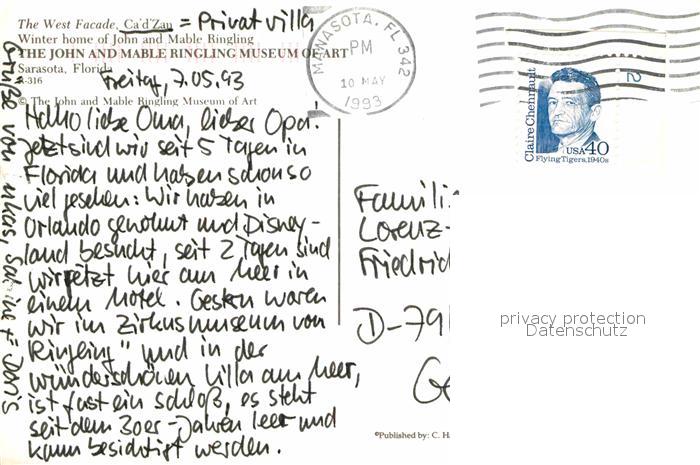 The West Facade, Ca'd'Zan = Privatvilla
Winter home of John and Mable Ringling
THE JOHN AND MABLE RINGLING MUSEUM OF ART
Sarasota, Florida
A-316
Freitag, 7.05.93
© The John and Mable Ringling Museum of Art
Hallo liebe Oma, lieber Opa!
Jetzt sind wir seit 5 Tagen in
Florida und haben schon so
viel gesehen: Wir haben in
Orlando gewohnt und Disney-
land besucht, seit 2 Tagen sind
wir jetzt hier am Meer in
einem Motel. Gestern waren
wir im Zirkusmuseum von
"Ringling" und in der
wunderschönen Villa am Meer,
ist fast ein Schloß, es steht
seit den 30er-Jahren leer und
kann besichtigt werden.
Grüße von Lukas, Sabine + Doris
MANASOTA, FL 342
PM
10 MAY
1993
Claire Chennault
USA 40
Flying Tigers, 1940s
2
Famili
Lorenz-
Friedrich
D-79
Ge
©Published by: C. H
privacy protection
Datenschutz